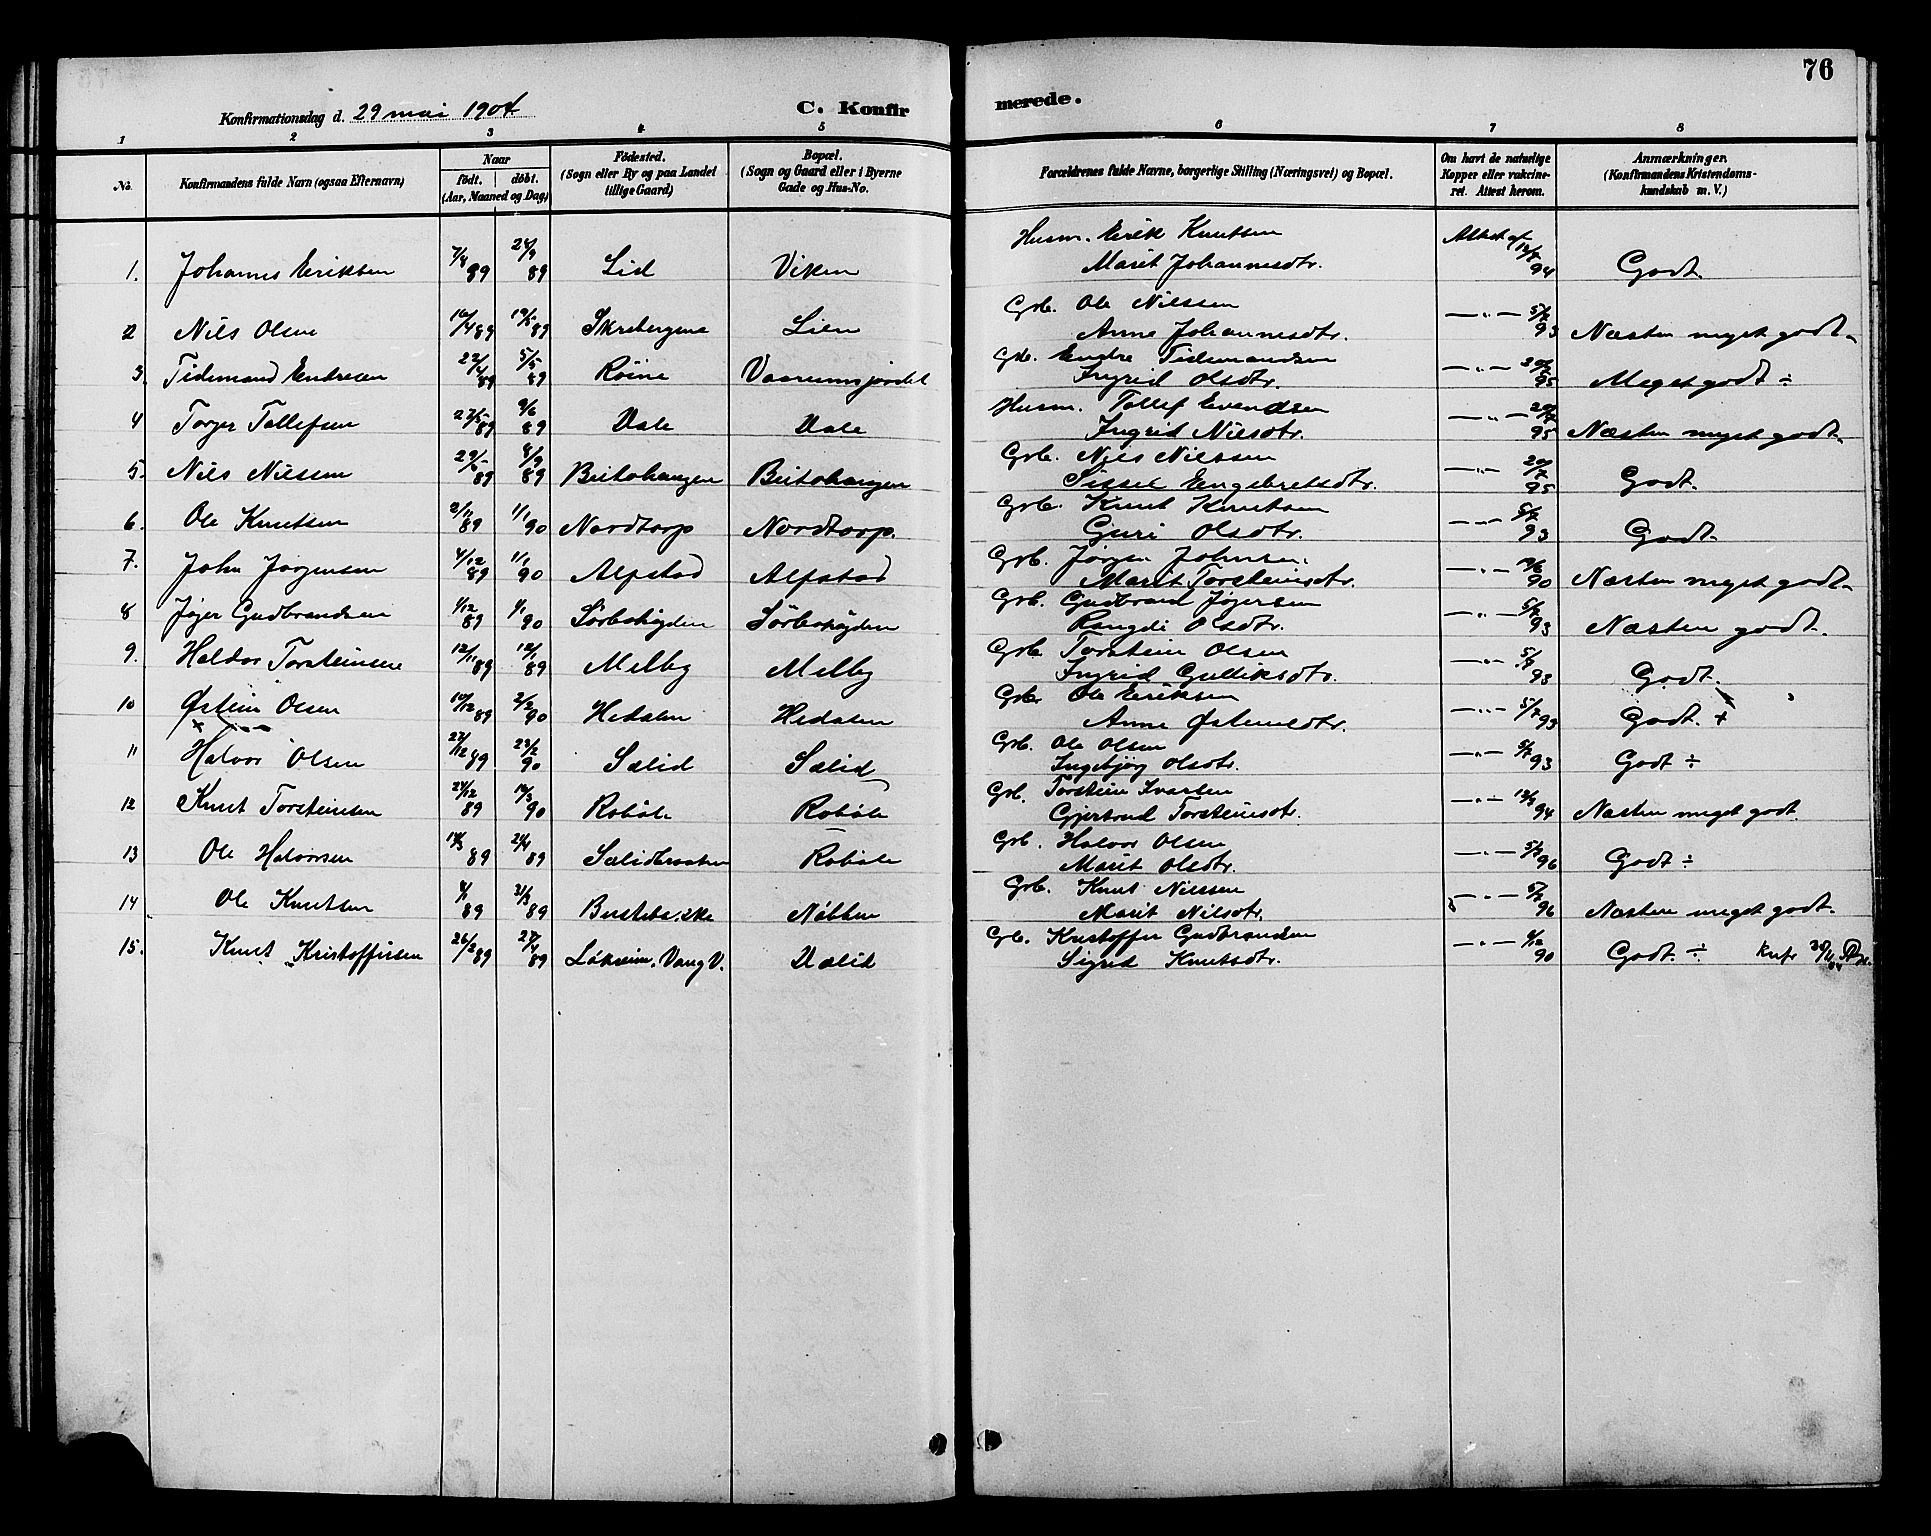 76
Konfirmationsdag d. 29 mai 1904 C. Konfirmerede.
1 2 3 4 5 6 7 8
No. Konfirmandens fulde Navn (ogsaa Efternavn) Naar født. døbt. (Aar, Maaned og Dag) Fødested. (Sogn eller By og paa Landet tillige Gaard) Bopæl. (Sogn og Gaard eller i Byerne Gade og Hus-No. Forældrenes fulde Navne, borgerlige Stilling (Næringsvei) og Bopæl. Om havt de naturlige Kopper eller vakcineret. Attest herom. Anmærkninger. (Konfirmandens Kristendomskundskab m. V.)
Husm. Erik Knutsen
1. Johannes Eriksen 7/8 89 24/9 89 Lid Viken Marit Johannesdtr. Attest af 94 Godt.
Grb. Ole Nilssen
2 Nils Olsen 16/4 89 19/5 89 Skrebergene Lien Anne Johannesdtr. — " — 5/7 93 Næsten meget godt.
Grb. Endre Tidemandsen
3. Tidemand Endresen 22/4 89 5/5 89 Røine Vaarumsjordet Ingrid Olsdtr. — " — 20/7 95 Meget godt ÷
Husm. Tollef Evendsen
4 Torger Tollefsen 27/5 89 9/6 89 Dale Dale Ingrid Nilsdtr. — " — 20/7 95 Næsten meget godt.
Grb. Nils Nilssen
5. Nils Nilssen 89 8/9 89 Beitohaugen Beitohaugen Sissel Engebretsdtr. — " — 20/7 95 Godt.
Grb. Knut Knutsen
6. Ole Knutsen 2/11 89 1/1 90 Nordtorp Nordtorp. Guri Olsdtr. — " — 5/7 93 Godt.
Grb. Jørgen Johnsen.
7. John Jørgensen 4/12 89 1/1 90 Alfstad Alfstad Marit Torsteinsdtr. — " — 90 Næsten meget godt.
Grb. Gudbrand Jøgersen
8 Jøger Gudbrandsen 1/12 89 1/1 90 Sørbøhøgden Sørbøhøgden Rangdi Olsdtr. — " — 5/7 93 Næsten godt.
Grb. Torstein Olsen
9. Haldor Torsteinsen 12/11 89 12/1 89 Melby Melby Ingrid Gulliksdtr. — " — 5/7 93 Godt.
Grb. Ole Eriksen
10 Østein Olsen 10/12 89 2/2 90 Hedalen Hedalen Anne Østensdtr. — " — 5/7 93 Godt. +
Grb. Ole Olsen
11 Halvor Olsen 27/12 89 23/2 90 Sælid Sælid Ingebjørg Olsdtr. — " — 5/7 93 Godt ÷
Grb. Torstein Ivarsen
12 Knut Torsteinsen 24/12 89 16/3 90 Robøle Robøle Gjertrud Torsteinsdtr. — " — 94 Næsten meget godt.
Grb. Halvor Olsen
13 Ole Halvorsen 89 21/4 89 Sælidbraaten Robøle Marit Olsdtr. — " — 5/7 96 Godt ÷
Grb. Knut Nilssen
14 Ole Knutsen 89 31/3 89 Nøbben Marit Nilsdtr. — " — 5/7 96 Næsten meget godt.
Grb. Kristoffer Gudbrandsen
15. Knut Kristoffersen 26/2 89 27/4 89 Løkreim, Vang V. Vælid Sigrid Knutsdtr. — " — 4/12 90 Godt. ÷